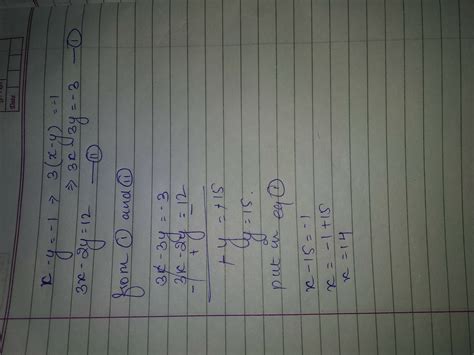 x - y = -1 ⇒ 3(x-y) = -1
⇒ 3x 3y = -3 — ①
3x - 2y = 12 — ⑪
from ① and ⑪
3x - 3y = -3
3x - 2y = 12
- + -
+ y = +15
y = 15.
put in eq ①
x - 15 = -1
x = -1 + 15
x = 14